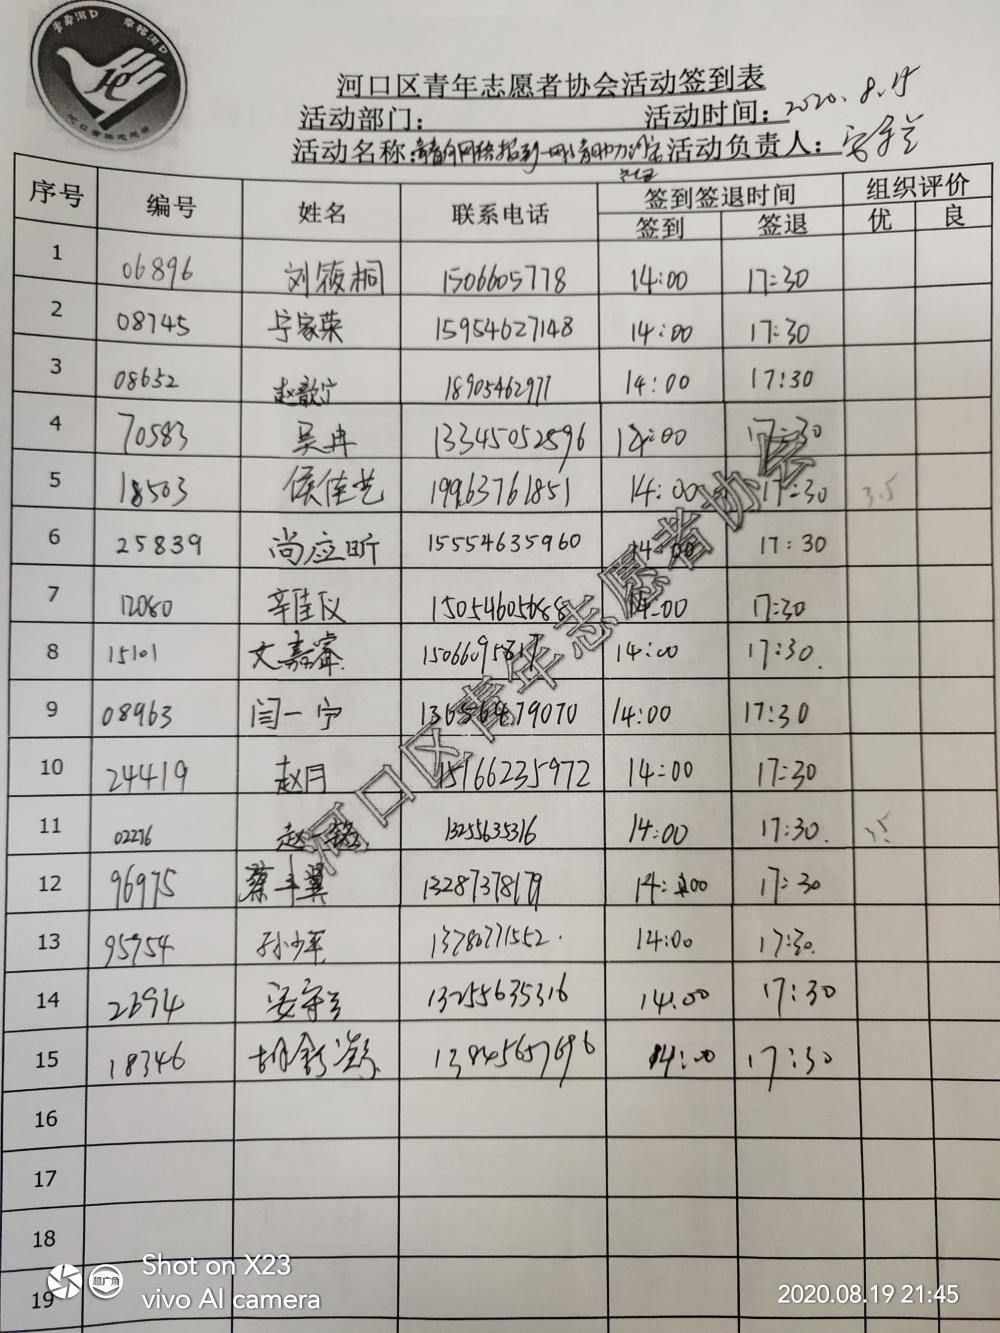 河口区青年志愿者协会活动签到表
活动部门： 活动时间：2020.8.
活动名称： 活动负责人：安守兰
序号 编号 姓名 联系电话 签到签退时间 组织评价
签到 签退 优 良
1 06896 刘筱桐 1506605778 14:00 17:30
2 08745 宁家荣 15954627148 14:00 17:30
3 08652 赵歆宁 18905462971 14:00 17:30
4 70583 吴冉 13345052596 14:00 17:30
5 18503 侯佳艺 19963761851 14:00 17:30 3.5
6 25839 尚应昕 15554635960 14:00 17:30
7 12080 辛佳仪 15054605688 14:00 17:30
8 15101 文嘉睿 15066095817 14:00 17:30.
9 08963 闫一宁 13656479070 14:00 17:30
10 24419 赵月 15166235972 14:00 17:30
11 02276 赵一 13255635316 14:00 17:30. 3.5
12 96975 蔡丰翼 13287378179 14:00 17:30
13 95754 孙少萍 13780771552. 14:00 17:30.
14 2694 安守兰 13255635316 14:00 17:30
15 18346 胡 13845657696 14:00 17:30
16
17
18
19
河口区青年志愿者协会
超广角
Shot on X23
vivo AI camera
2020.08.19 21:45